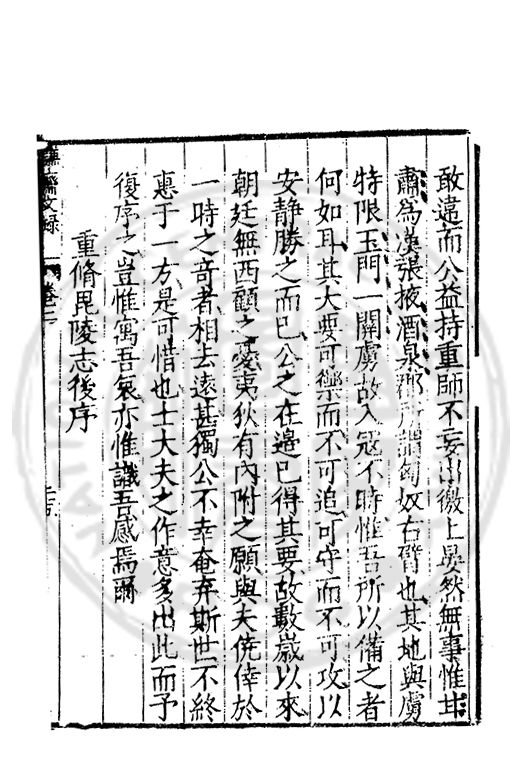 敢違而公益持重師不妄出徼上晏然無事惟甘
肅為漢張掖酒泉郡所謂匈奴右臂也其地與虜
特限玉門一關虜故入冦不時惟吾所以備之者
何如耳其大要可禦而不可追可守而不可攻以
安靜勝之而已公之在邉已得其要故數歲以來
朝廷無西顧之憂夷狄有內附之願與夫僥倖於
一時之竒者相去遠甚獨公不幸奄弃斯世不終
惠于一方是可惜也士大夫之作意多出此而予
復序之豈惟寓吾哀亦惟識吾感焉爾
重脩毘陵志後序
文録
卷三